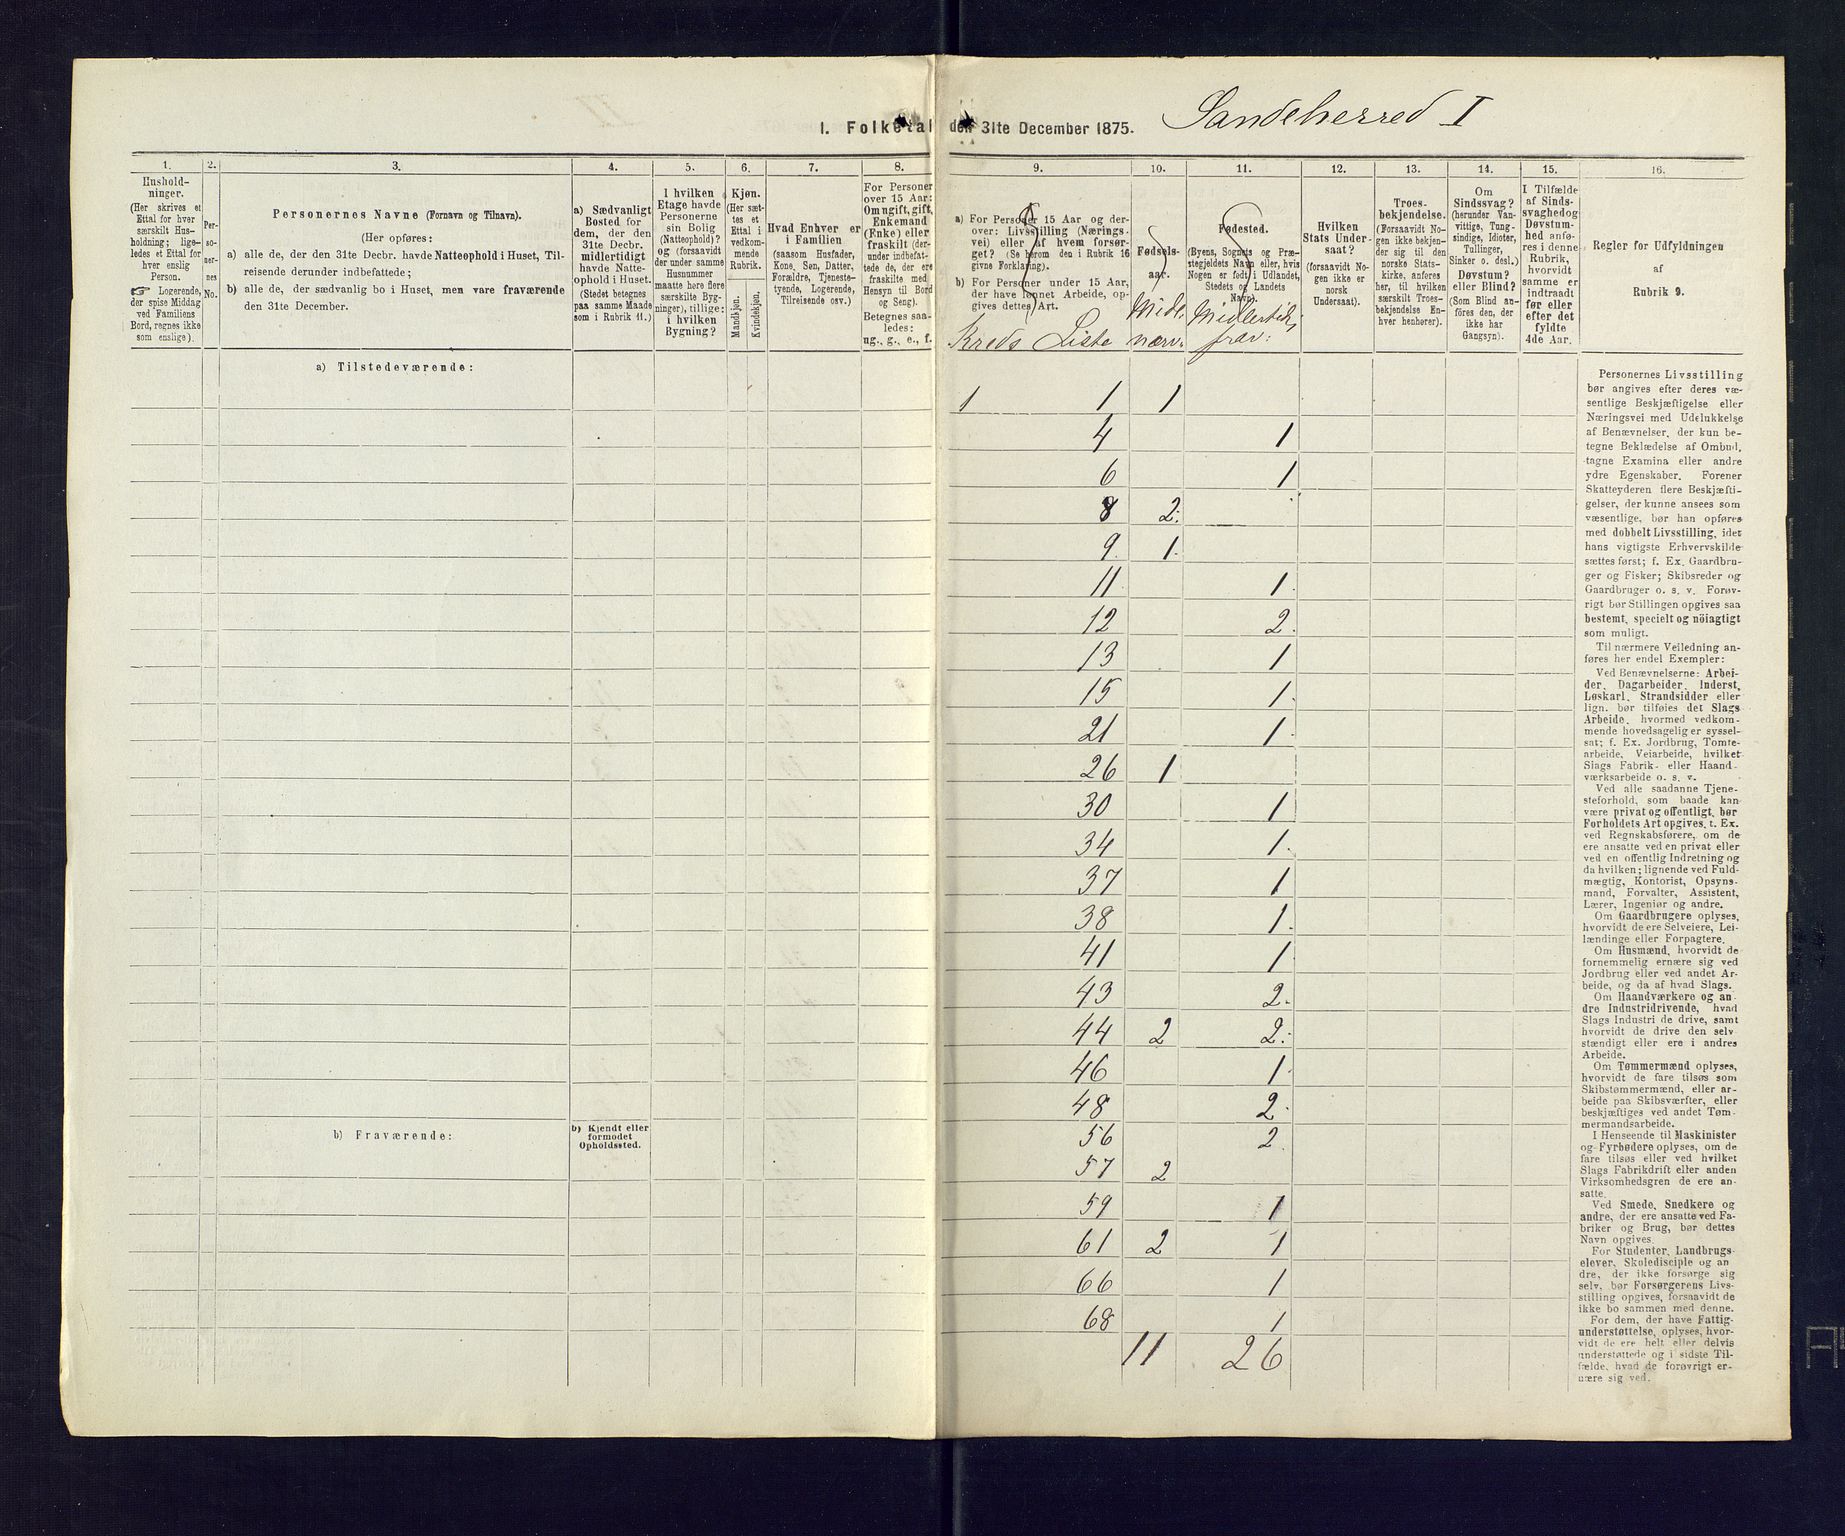 1. Folketal den 31te December 1875.
Sandeherred I
1.
Hushold-
ninger.
(Her skrives et
Ettal for hver
særskilt Hus-
holdning; lige-
ledes et Ettal for
hver enslig
Person.
☞ Logerende,
der spise Middag
ved Familiens
Bord, regnes ikke
som enslige).
2.
Per-
so-
ner-
nes
No.
3.
Personernes Navne (Fornavn og Tilnavn).
(Her opføres:
a) alle de, der den 31te Decbr. havde Natteophold i Huset, Til-
reisende derunder indbefattede;
b) alle de, der sædvanlig bo i Huset, men vare fraværende
den 31te December.
4.
a) Sædvanligt
Bosted for
dem, der den
31te Decbr.
midlertidigt
havde Natte-
ophold i Huset.
(Stedet betegnes
paa samme Maade
som i Rubrik 11.)
5.
I hvilken
Etage havde
Personerne
sin Bolig
(Natteophold)?
og (forsaavidt
der under samme
Husnummer
maatte høre flere
særskilte Byg-
ninger), tillige:
i hvilken
Bygning?
6.
Kjøn.
(Her sæt-
tes et
Ettal i
vedkom-
mende
Rubrik.
Mandkjøn.
Kvindekjøn.
7.
Hvad Enhver er
i Familien
(saasom Husfader,
Kone, Søn, Datter,
Forældre, Tjeneste-
tyende, Logerende,
Tilreisende osv.)
8.
For Personer
over 15 Aar:
Om ugift, gift,
Enkemand
(Enke) eller
fraskilt (der-
under indbefat-
tede de, der ere
fraskilte med
Hensyn til Bord
og Seng).
Betegnes saa-
ledes:
ug., g., e., f.
9.
a) For Personer 15 Aar og der-
over: Livsstilling (Nærings-
vei) eller af hvem forsør-
get? (Se herom den i Rubrik 16
givne Forklaring).
b) For Personer under 15 Aar,
der have lønnet Arbeide, op-
gives dettes Art.
Kreds Liste
10.
Fødsels-
aar.
Midl.
nærv.
11.
Fødested.
(Byens, Sognets og Præ-
stegjeldets Navn eller, hvis
Nogen er født i Udlandet,
Stedets og Landets
Navn).
Midlertidig
frav:
12.
Hvilken
Stats Under-
saat?
(forsaavidt No-
gen ikke er
norsk
Undersaat).
13.
Troes-
bekjendelse.
(Forsaavidt No-
gen ikke bekjen-
der sig til den
norske Stats-
kirke, anføres
her, til hvilken
særskilt Troes-
bekjendelse En-
hver henhører).
14.
Om
Sindssvag?
(herunder Van-
vittige, Tung-
sindige, Idioter,
Tullinger,
Sinker o. desl.)
Døvstum?
eller Blind?
(Som Blind an-
føres den, der
ikke har
Gangsyn).
15.
I Tilfælde
af Sinds-
svaghed og
Døvstum-
hed anfø-
res i denne
Rubrik,
hvorvidt
samme er
indtraadt
før eller
efter det
fyldte
4de Aar.
16.
Regler for Udfyldningen
af
Rubrik 9.
a) Tilstedeværende:
1 1 1
4 1
6 1
8 2.
9. 1.
11 1.
12 2.
13 1
15 1.
21 1.
26 1
30 1
34 1.
37 1
38 1.
41 1.
43 2.
44 2 2.
46 1.
48 2.
56 2.
57 2
59 1
61 2 1
66 1
68 1
11 26
b) Fraværende:
b) Kjendt eller
formodet
Opholdssted.
Personernes Livsstilling
bør angives efter deres væ-
sentlige Beskjæftigelse eller
Næringsvei med Udelukkelse
af Benævnelser, der kun be-
tegne Beklædelse af Ombud,
tagne Examina eller andre
ydre Egenskaber. Forener
Skatteyderen flere Beskjæfti-
gelser, der kunne ansees som
væsentlige, bør han opføres
med dobbelt Livsstilling, idet
hans vigtigste Erhvervskilde
sættes først; f. Ex. Gaardbru-
ger og Fisker; Skibsreder og
Gaardbruger o. s. v. Forøv-
rigt bør Stillingen opgives saa
bestemt, specielt og nöiagtigt
som muligt.
Til nærmere Veiledning an-
føres her endel Exempler:
Ved Benævnelserne: Arbei-
der, Dagarbeider, Inderst,
Løskarl, Strandsidder eller
lign. bør tilføies det Slags
Arbeide, hvormed vedkom-
mende hovedsagelig er syssel-
sat; f. Ex. Jordbrug, Tomte-
arbeide, Veiarbeide, hvilket
Slags Fabrik- eller Haand-
værksarbeide o. s. v.
Ved alle saadanne Tjene-
steforhold, som baade kan
være privat og offentligt, bør
Forholdets Art opgives, t. Ex.
ved Regnskabsførere, om de
ere ansatte ved en privat eller
ved en offentlig Indretning og
da hvilken; lignende ved Fuld-
mægtig, Kontorist, Opsyns-
mand, Forvalter, Assistent,
Lærer, Ingeniør og andre.
Om Gaardbrugere oplyses,
hvorvidt de ere Selveiere, Lei-
lændinge eller Forpagtere.
Om Husmænd, hvorvidt de
fornemmelig ernære sig ved
Jordbrug eller ved andet Ar-
beide, og da af hvad Slags.
Om Haandværkere og an
dre Industridrivende, hvad
Slags Industri de drive, samt
hvorvidt de drive den selv
stændigt eller ere i andres
Arbeide.
Om Tømmermænd oplyses,
hvorvidt de fare tilsøs som
Skibstømmermænd, eller ar-
beide paa Skibsværfter, eller
beskjæftiges ved andet Tøm-
mermandsarbeide.
I Henseende til Maskinister
og Fyrbødere oplyses, om de
fare tilsøs eller ved hvilket
Slags Fabrikdrift eller anden
Virksomhedsgren de ere an-
satte.
Ved Smede, Snedkere og
andre, der ere ansatte ved Fa-
briker og Brug, bør dettes
Navn opgives.
For Studenter, Landbrugs-
elever, Skoledisciple og an
dre, der ikke forsørge sig
selv, bør Forsørgerens Livs-
stilling opgives, forsaavidt de
ikke bo sammen med denne.
For dem, der have Fattig-
understøttelse, oplyses, hvor-
vidt de ere helt eller delvis
understøttede og i sidste Til-
fælde, hvad de forøvrigt er-
nære sig ved.